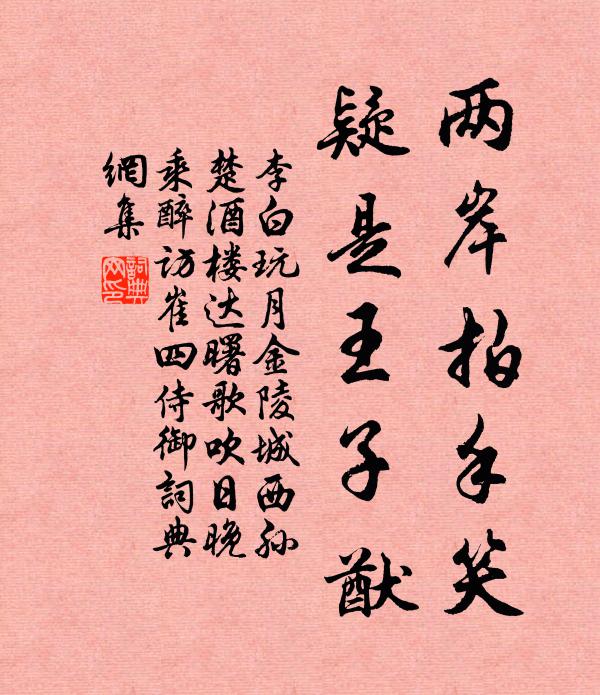 两岸拍手笑
疑是王子猷
李白玩月金陵城西孙
楚酒楼达曙歌吹日晚
乘醉访崔四侍御詞典
網集
詞典
网印